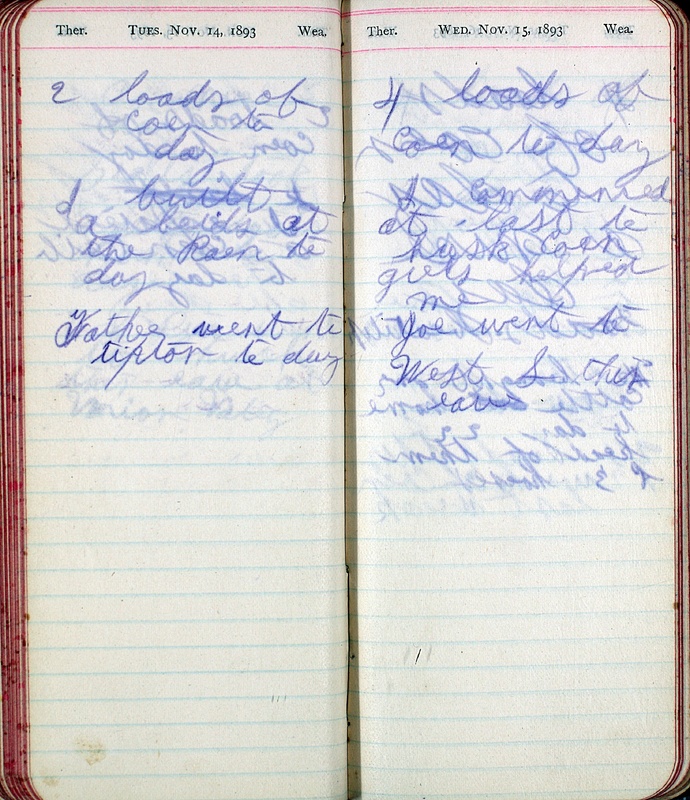 Ther. TUES. NOV. 14, 1893 Wea.
2 loads of
Coen to
day
I built
a beids at
the Roen te
day
Father went te
tipton te day
Ther. WED. NOV. 15, 1893 Wea.
4 loads of
Coen te day
I Commenced
at last te
husk Coen
girls helped
me
Joe went te
West L this